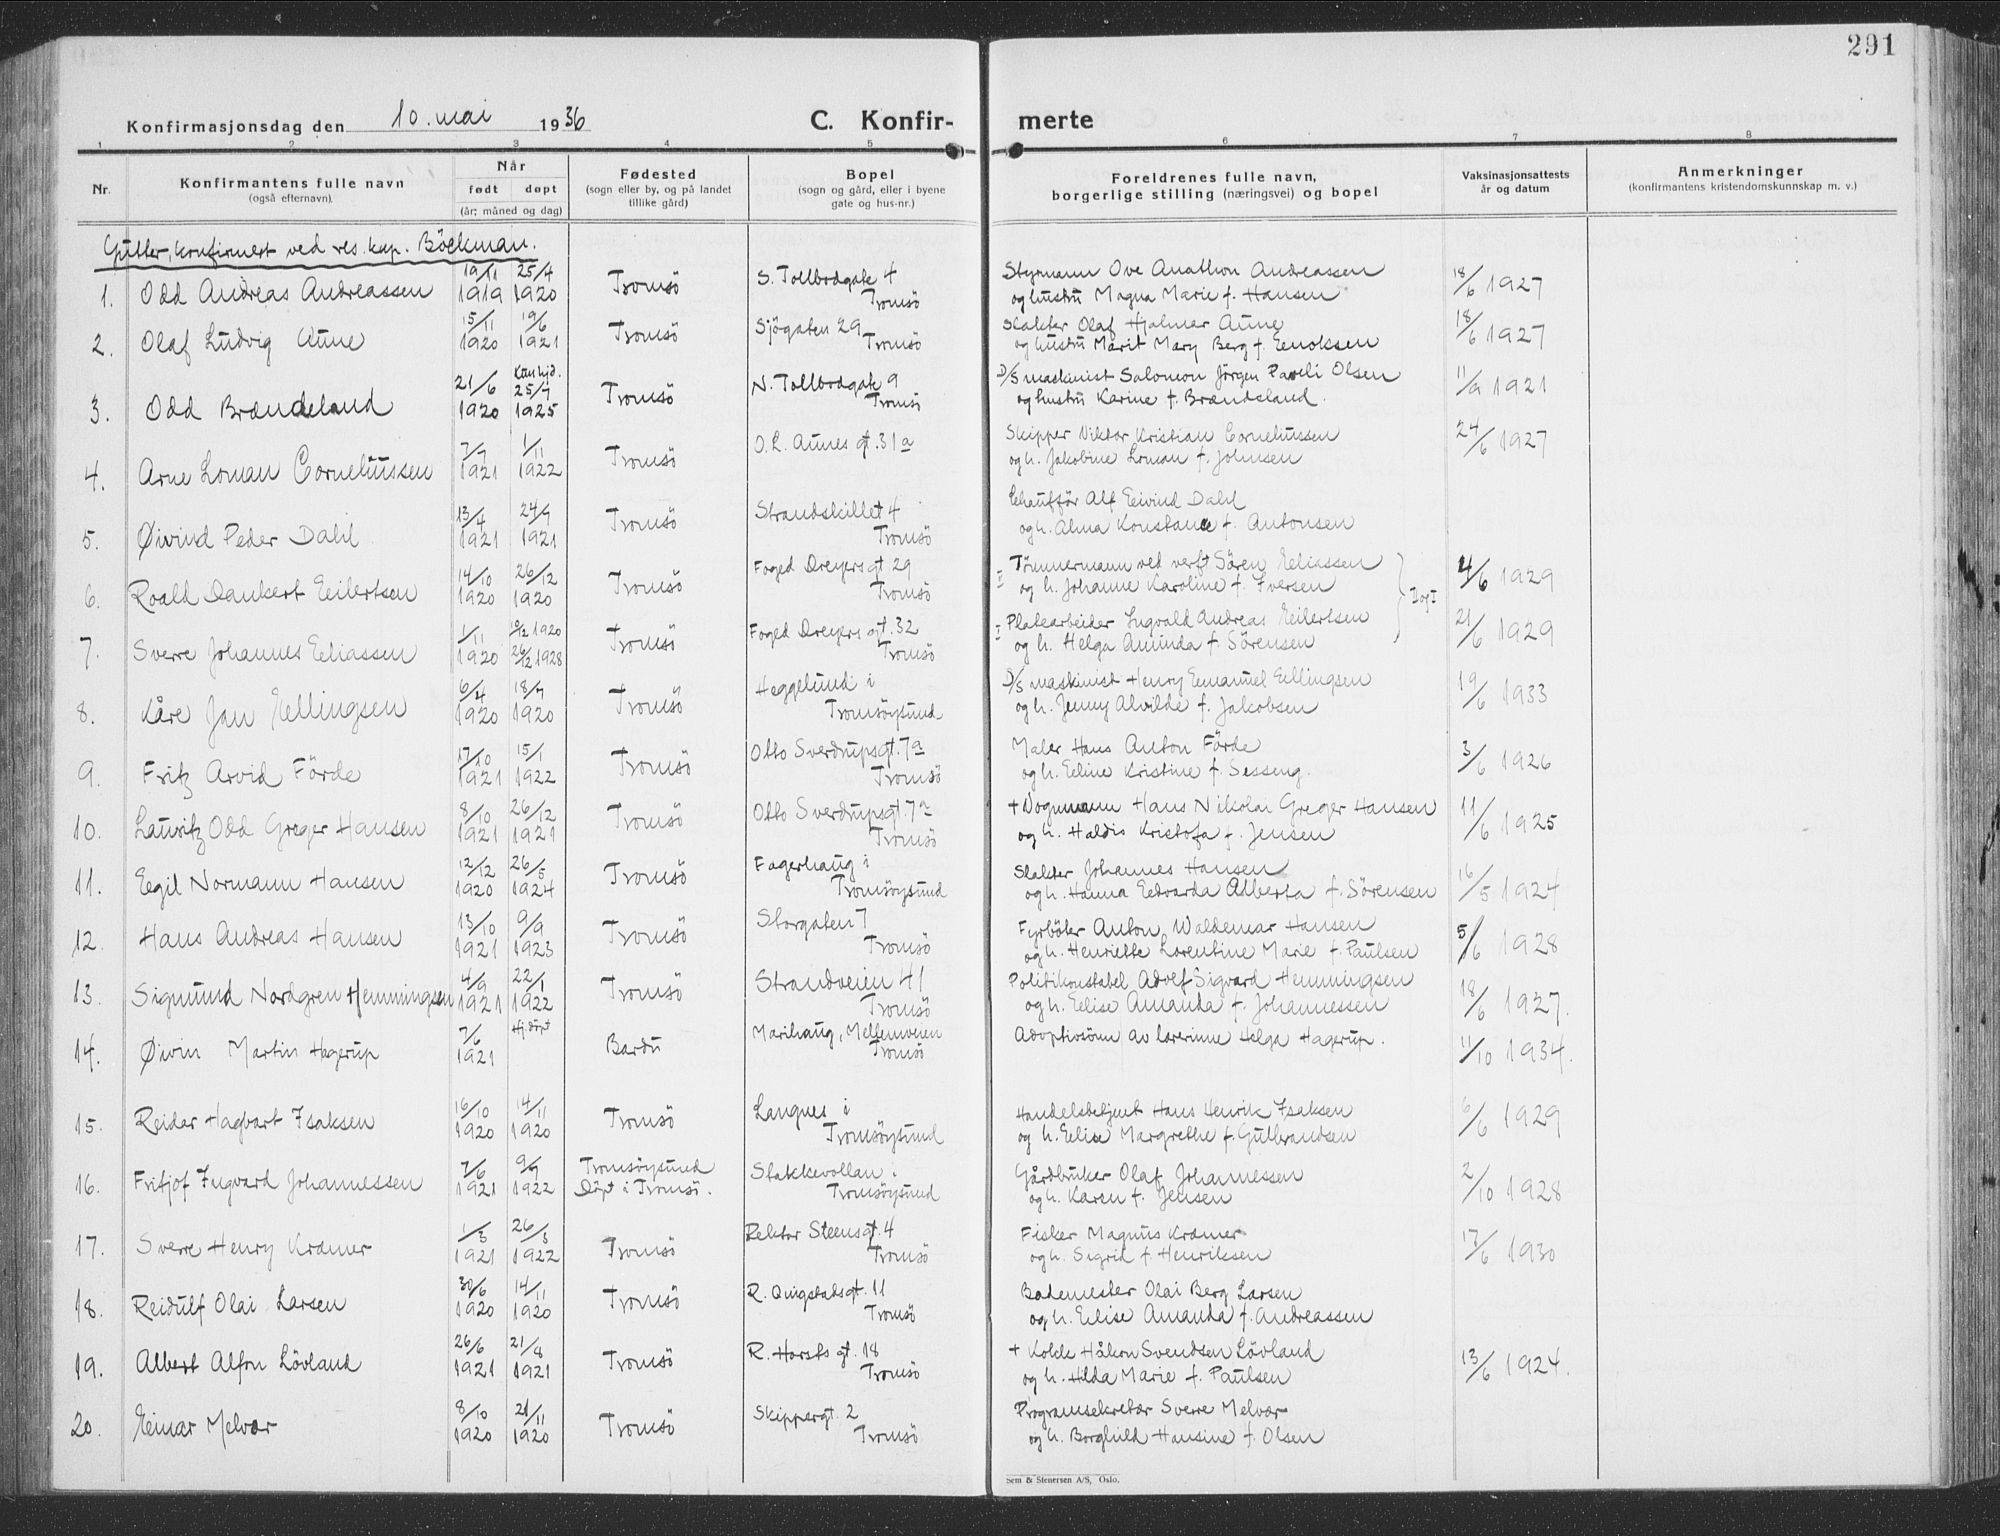 291
Konfirmasjonsdag den 10. mai 1936
C. Konfir- merte
1 2 3 4 5 6 7 8
Nr. Konfirmantens fulle navn (også efternavn). Når født døpt (år; måned og dag) Fødested (sogn eller by, og på landet tillike gård) Bopel (sogn og gård, eller i byene gate og hus-nr.) Foreldrenes fulle navn, borgerlige stilling (næringsvei) og bopel Vaksinasjonsattests år og datum Anmerkninger (konfirmantens kristendomskunnskap m. v.)
Gutter, konfirmert ved res. kap. Böckman.
1. Odd Andreas Andreassen 19/11 1919 25/4 1920 Tromsö S. Tollbodgate 4 Tromsö Styrmann Ove Anathon Andreassen og hustru Magna Marie f. Hansen 18/6 1927
2. Olaf Ludvig Aune 15/11 1920 19/6 1921 Tromsö Sjögaten 29 Tromsö Slakter Olaf Hjalmar Aune og hustru Marit Mary Berg f. Eenoksen 18/6 1927
3. Odd Brændsland 21/6 1920 25/7 1925 Tromsö N. Tollbodgate 9 Tromsö D/S maskinist Salomon Jörgen Paveli Olsen og hustru Karine f. Brændsland. 11/9 1921
4. Arne Loman Corneliussen 7/7 1921 1/11 1922 Tromsö O.L. Aunes gt. 31a Skipper Viktor Kristian Corneliussen og h. Jakobine Loman f. Johnsen 24/6 1927
5. Øivind Peder Dahl 13/4 1921 24/9 1921 Tromsö Strandskillet 4 Tromsö Chaufför Alf Eivind Dahl og h. Alma Konstance f. Antonsen
6. Roald Dankert Eilertsen 14/10 1920 26/12 1920 Tromsö Foged Dreyers gt 29 Tromsö II Tömmermann ved verft Sören Eliassen og h. Johanne Karoline f. Iversen 4/6 1929
7. Sverre Johannes Eliassen 1/11 1920 10/12 1920 26/12 1928 Tromsö Foged Dreyers gt. 32 Tromsö I Platearbeider Ingvald Andreas Eilertsen og h. Helga Aminda f. Sörensen 21/6 1929
8. Kåre Jan Ellingsen 6/4 1920 18/7 1920 Tromsö Heggelund i Tromsöysund D/S maskinist Henry Emanuel Ellingsen og h. Jenny Alvilde f. Jakobsen 19/6 1933
9. Fritz Arvid Förde 17/10 1921 15/1 1922 Tromsö Otto Sverdrupsgt. 7a Tromsö Maler Hans Anton Förde og h. Eline Kristine f. Sesseng. 3/6 1926
10. Lauritz Odd Greger Hansen 8/10 1921 26/12 1921 Tromsö Otto Sverdrupsgt. 7a Tromsö + Vognmann Hans Nikolai Greger Hansen og h. Haldis Kristofa f. Jensen 11/6 1925
11. Egil Normann Hansen 12/12 1920 26/5 1924 Tromsö Fagerhaug i Tromsöysund Slakter Johannes Hansen og h. Hanna Edvarda Alberta f. Sörensen 16/5 1924
12. Hans Andreas Hansen 13/10 1921 9/9 1923 Tromsö Storgaten 7 Tromsö Fyrböter Anton Waldemar Hansen og h. Henriette Lorentine Marie f. Paulsen 5/6 1928
13. Sigmund Nordgren Hemmingsen 4/9 1921 22/1 1922 Tromsö Strandveien 41 Tromsö Politikonstabel Adolf Sigvard Hemmingsen og h. Elise Amanda f. Johannessen 18/6 1927.
14. Øivin Martin Hagerup 7/6 1921 Hj. döpt Bardu Marihaug, Mellemveien Tromsö Adoptivsönn av lærerinne Helga Hagerup. 11/10 1934.
15. Reidar Hagbart Isaksen 16/10 1920 14/11 1920 Tromsö Langnes i Tromsöysund Handelsbetjent Hans Henrik Isaksen og h. Elise Margrethe f. Gulbrandsen 6/6 1929
16. Fritjof Ingvard Johannessen 7/6 1921 9/7 1922 Tromsöysund Döpt i Tromsö. Stakkevollan i Tromsöysund Gårdbruker Olaf Johannessen og h. Karen f. Jensen 2/10 1928
17. Sverre Henry Kramer 1/3 1921 26/3 1922 Tromsö Rektor Steensgt. 4 Tromsö Fisker Magnus Kramer og h. Sigrid f. Henriksen 17/6 1930
18. Reidulf Olai Larsen 30/6 1920 14/11 1920 Tromsö R. Qvigstadsgt. 11 Tromsö Bademester Olai Berg Larsen og h. Elise Amanda f. Andreassen
19. Albert Alfon Lövland 26/6 1921 21/8 1921 Tromsö R. Horsts gt. 18 Tromsö + Kokk Håkon Svendsen Lövland og h. Hilda Marie f. Paulsen 13/6 1924.
20. Einar Melvær 8/10 1920 21/11 1920 Tromsö Skippergt. 2 Tromsö Programsekretær Sverre Melvær og h. Borghild Hansine f. Olsen
Sem & Stenersen A/S, Oslo.